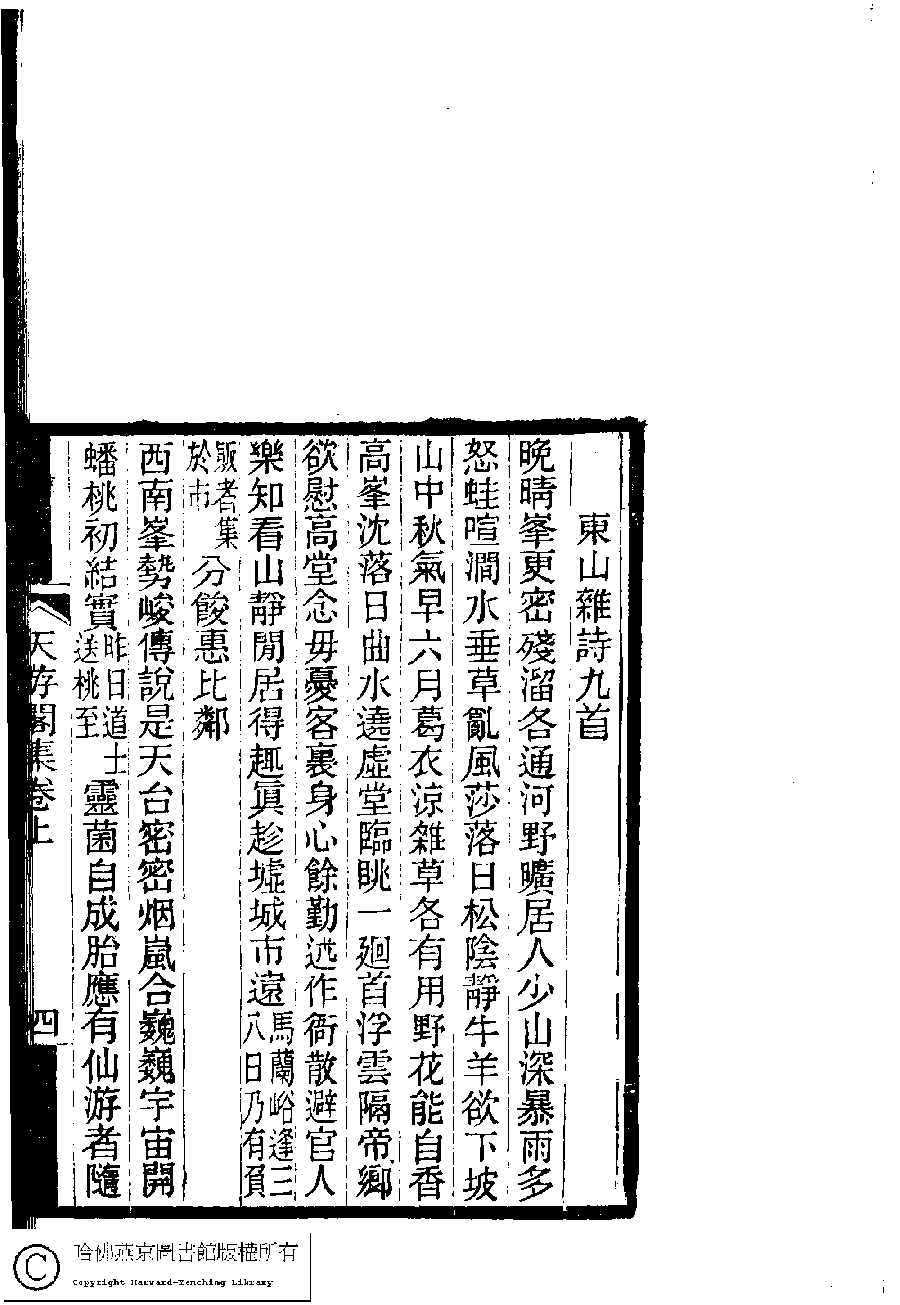 東山雜詩九首
晚晴峯更密殘溜各通河野曠居人少山深暴雨多
怒蛙喧澗水垂草亂風莎落日松陰靜牛羊欲下坡
山中秋氣早六月葛衣涼雜草各有用野花能自香
高峯沈落日曲水遶虛堂臨眺一廻首浮雲隔帝鄉
欲慰高堂念毋憂客裏身心餘勤述作衙散避官人
樂知看山靜閒居得趣眞趁墟城市遠馬蘭峪逢三八日乃有負
販者集於市分餕惠比鄰
西南峯勢峻傳說是天台密密烟嵐合巍巍宇宙開
蟠桃初結實昨日道士送桃至靈菌自成胎應有仙游者隨
天游閣集卷上
四
哈佛燕京圖書館版權所有
Copyright Harvard-Yenching Library